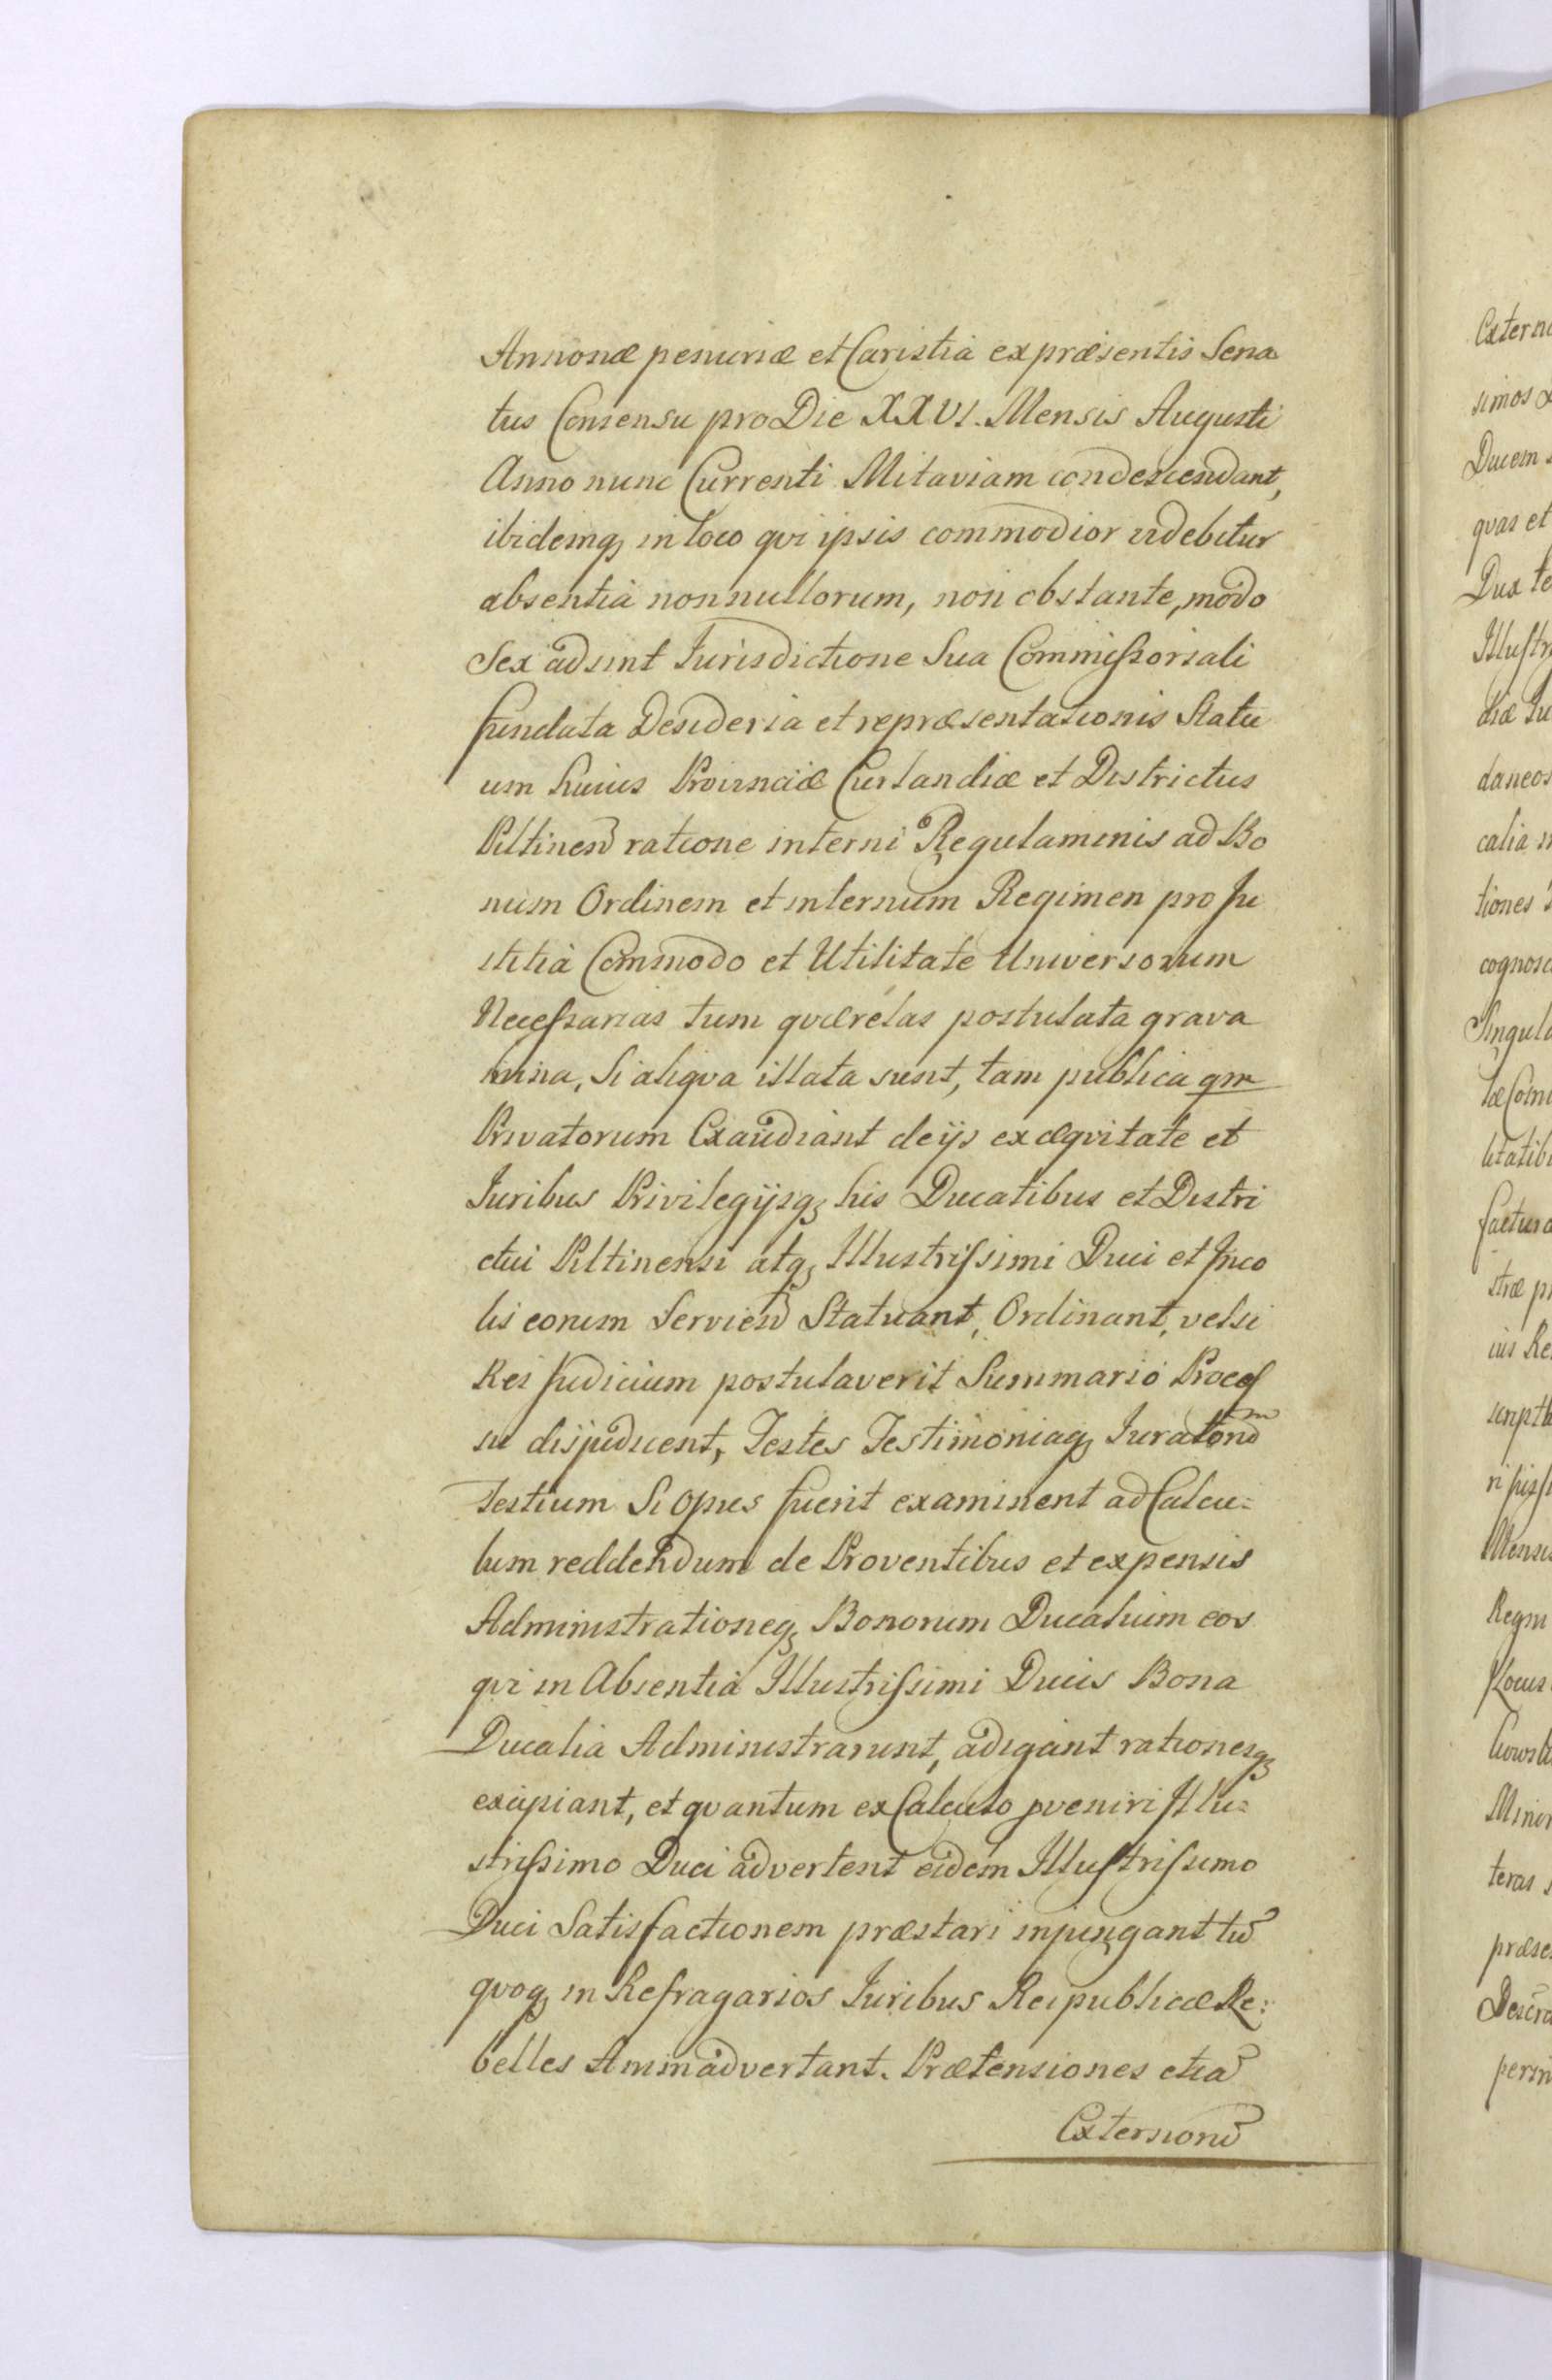 Annonæ penuriæ et Caristià ex præsentis Sena
tus Consensu pro Die XXVI. Mensis Augusti
Anno nunc Currenti Mitaviam condescendant,
ibidemq; in loco qvi ipsis commodior videbitur
absentià nonnullorum, non obstante, modo
Sex adsint Iurisdictione Sua Commissoriali
fundata Desideria et repræsentationis Statu
um huius Provinciæ Curlandiæ et Districtus
Piltinen ratione interni Regulaminis ad Bo
num Ordinem et internum Regimen pro Iu
stitià Commodo et Utilitate Universorum
Necessarias tum qværelas postulata grava
mina, Si aliqva illata sunt, tam publica qm
Privatorum Exaudiant de ijs ex æqvitate et
Iuribus Privilegijsq; his Ducatibus et Distri
ctui Piltinensi atq; Illustrissimi Duci et Inco
lis eorum Servien Statuant, Ordinant, vel si
Rei Judicium postulaverit Summario Proces
su disjudicent, Testes Testimoniaq; Iurator
Testium Si Opus fuerit examinent ad Calcu=
lum reddendum de Proventibus et expensis
Administrationeq; Bonorum Ducalium eos
qvi in Absentià Illustrissimi Ducis Bona
Ducalia Administrarunt, adigant rationesq;
excipiant, et qvantum ex Calculo pveniri Illu=
strissimo Duci advertent eidem Illustrissimo
Duci Satisfactionem præstari injungant tu
qvoq; in Refragarios Iuribus Reipublicæ Re:
belles Animadvertant. Prætensiones etia
Externoru
Extern
simos
Ducem
qvas et
Dux te
Illustr
diæ Iu
daneos
calia
tiones
cognosc
Singula
litatib
factura
stræ p
ius Re
script
Mensis
Regni
Minor
teras
præse